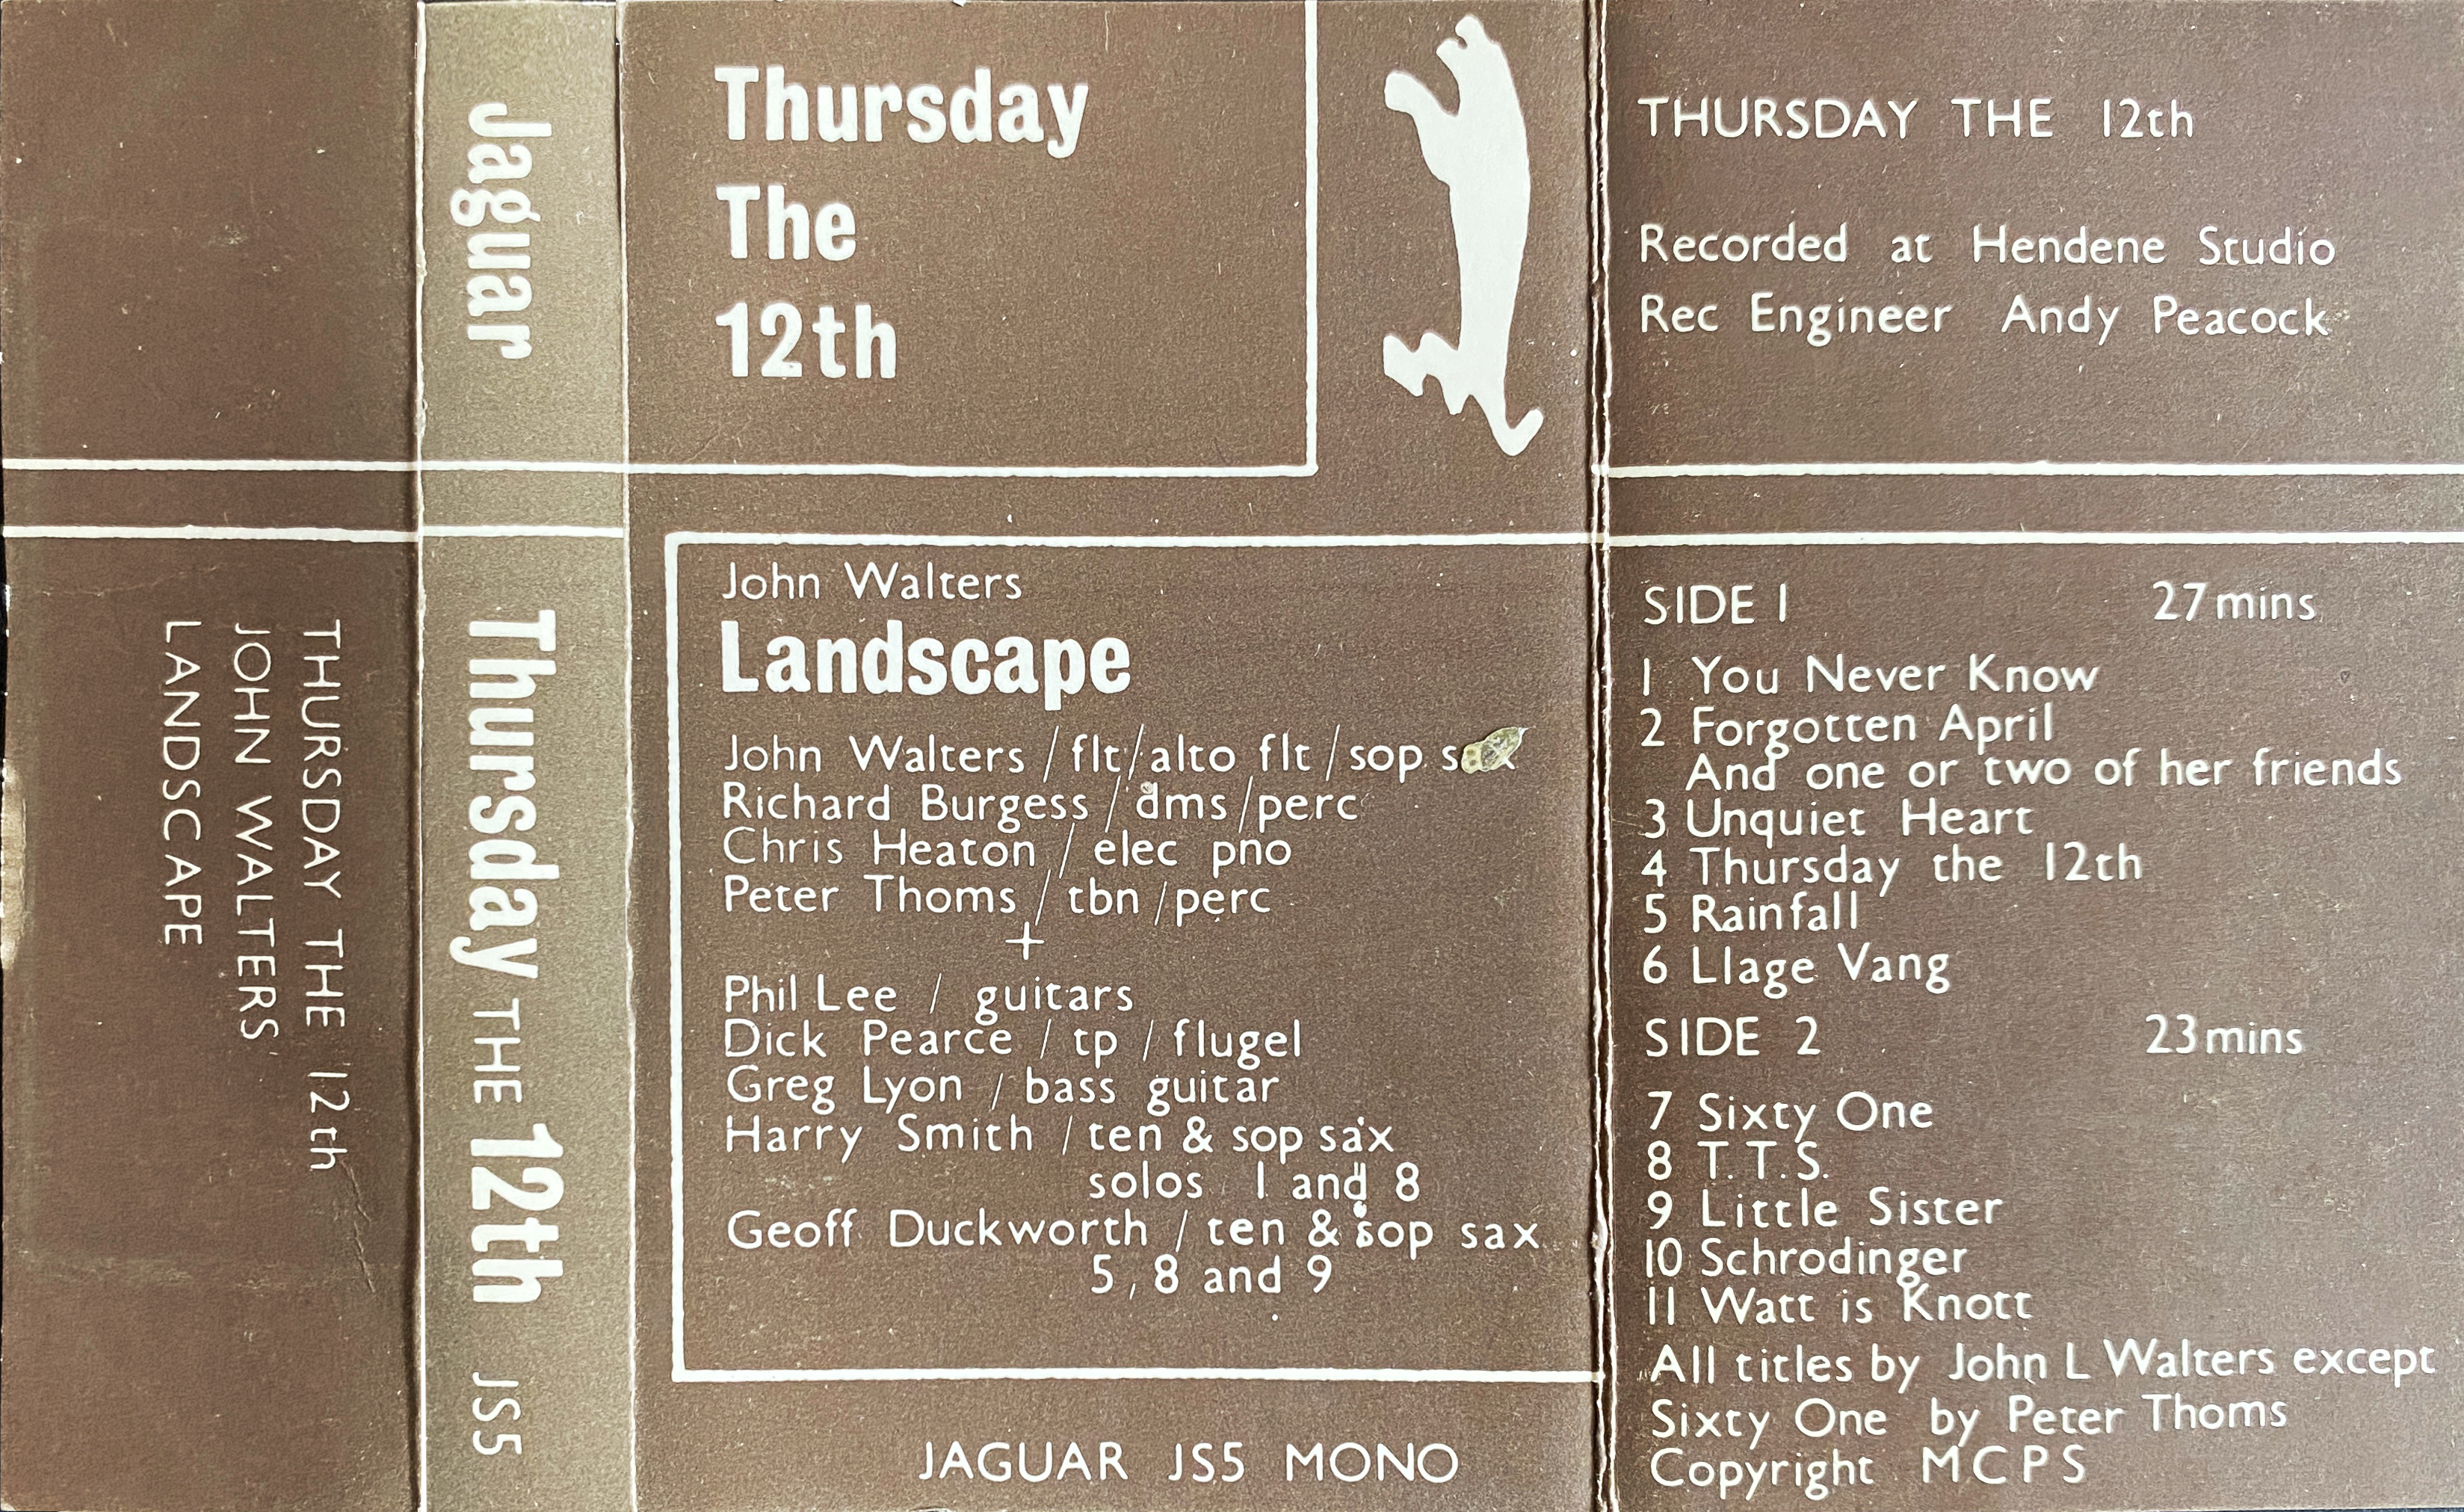 THURSDAY THE 12th
JOHN WALTERS
LANDSCAPE
Jaguar Thursday THE 12th JS5
Thursday
The
12th
John Walters
Landscape
John Walters / flt / alto flt / sop sax
Richard Burgess / dms / perc
Chris Heaton / elec pno
Peter Thoms / tbn / perc
+
Phil Lee / guitars
Dick Pearce / tp / flugel
Greg Lyon / bass guitar
Harry Smith / ten & sop sax
solos 1 and 8
Geoff Duckworth / ten & sop sax
5, 8 and 9
JAGUAR JS5 MONO
THURSDAY THE 12th
Recorded at Hendene Studio
Rec Engineer Andy Peacock
SIDE 1 27 mins
1 You Never Know
2 Forgotten April
And one or two of her friends
3 Unquiet Heart
4 Thursday the 12th
5 Rainfall
6 Llage Vang
SIDE 2 23 mins
7 Sixty One
8 T.T.S.
9 Little Sister
10 Schrodinger
11 Watt is Knott
All titles by John L Walters except
Sixty One by Peter Thoms
Copyright MCPS